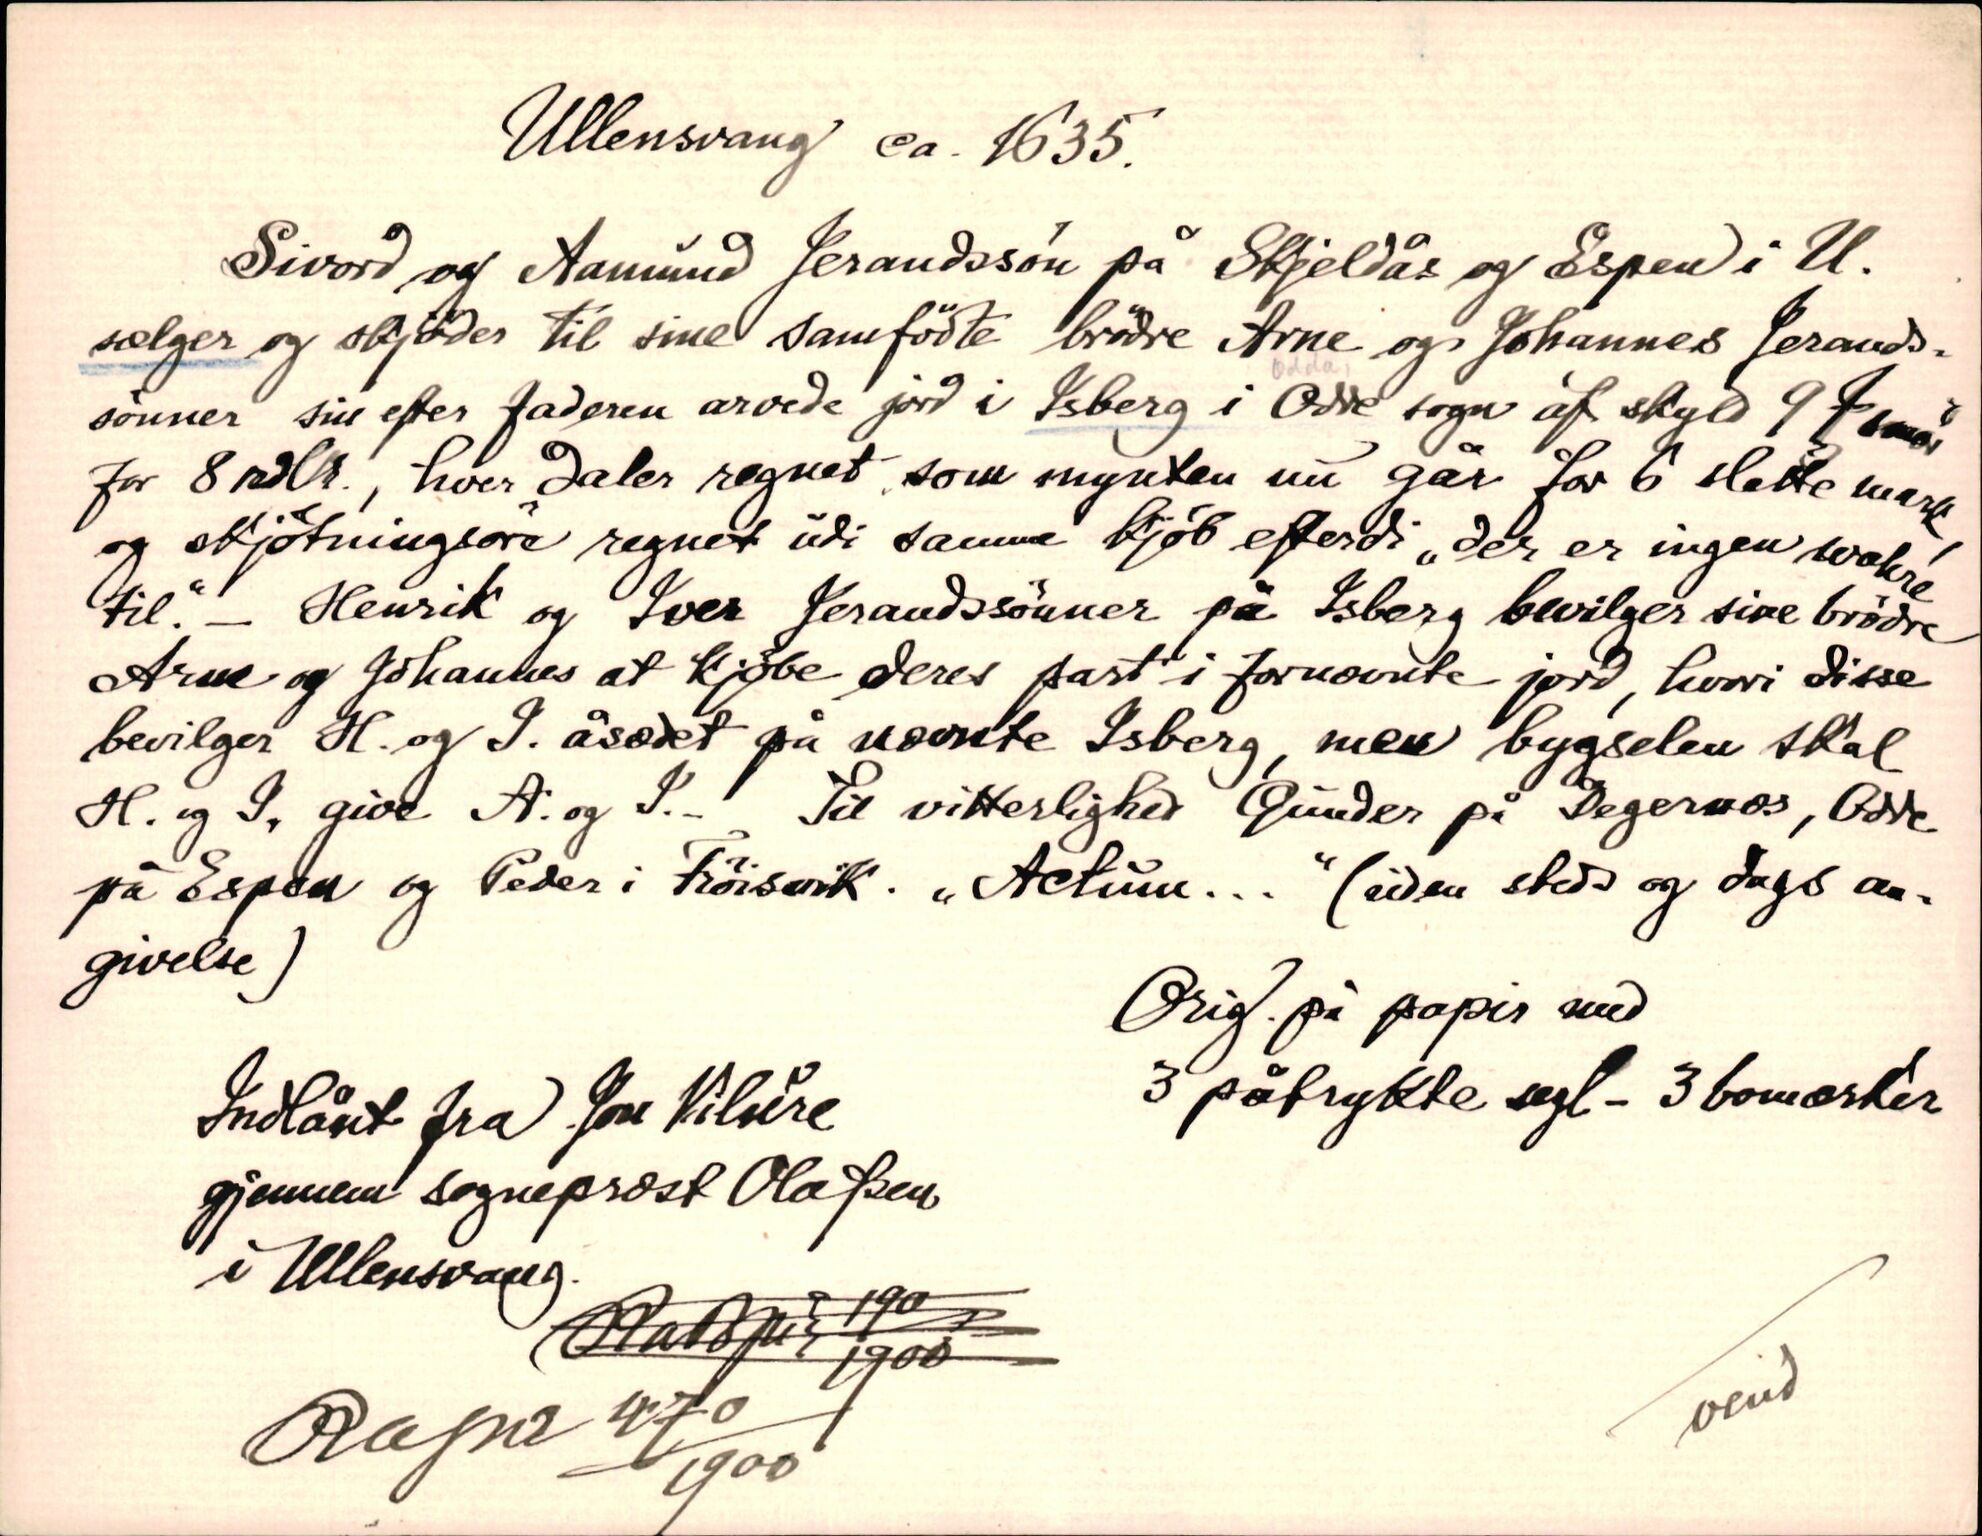 Ullensvang ca. 1635.
Sivord og Aamund Jerandssön på Skjeldås og Espen i U.
sælger og skjöder til sine samfödte brödre Arne og Johannes Jerands-
Odda,
sönner sin efter faderen arvede jord i Isberg i Odde sogn af skyld 9
for 8 rdlr., hver daler regnet som mynten nu går for 6 slette mark,
og skjötningsöre regnet udi samme kjöb efterdi „der er ingen
til.“ – Henrik og Iver Jerandssönner på Isberg bevilger sine brödre
Arne og Johannes at kjöbe deres part i fornævnte jord, hvori disse
bevilger H. og I. åsædet på nævnte Isberg, men bygselen skal
H. og I. give A. og J. – Til vitterlighed Gunder på Degernæs, Odde
på Espen og Peder i Fröisvik. „Actum...“ (uden steds og dags an-
givelse)
Orig. på papir med
3 påtrykte segl – 3 bomærker
Indlånt fra Jon Vilure
gjennem sogneprest Olafsen
i Ullensvang.
190
1900
470
1900
vend